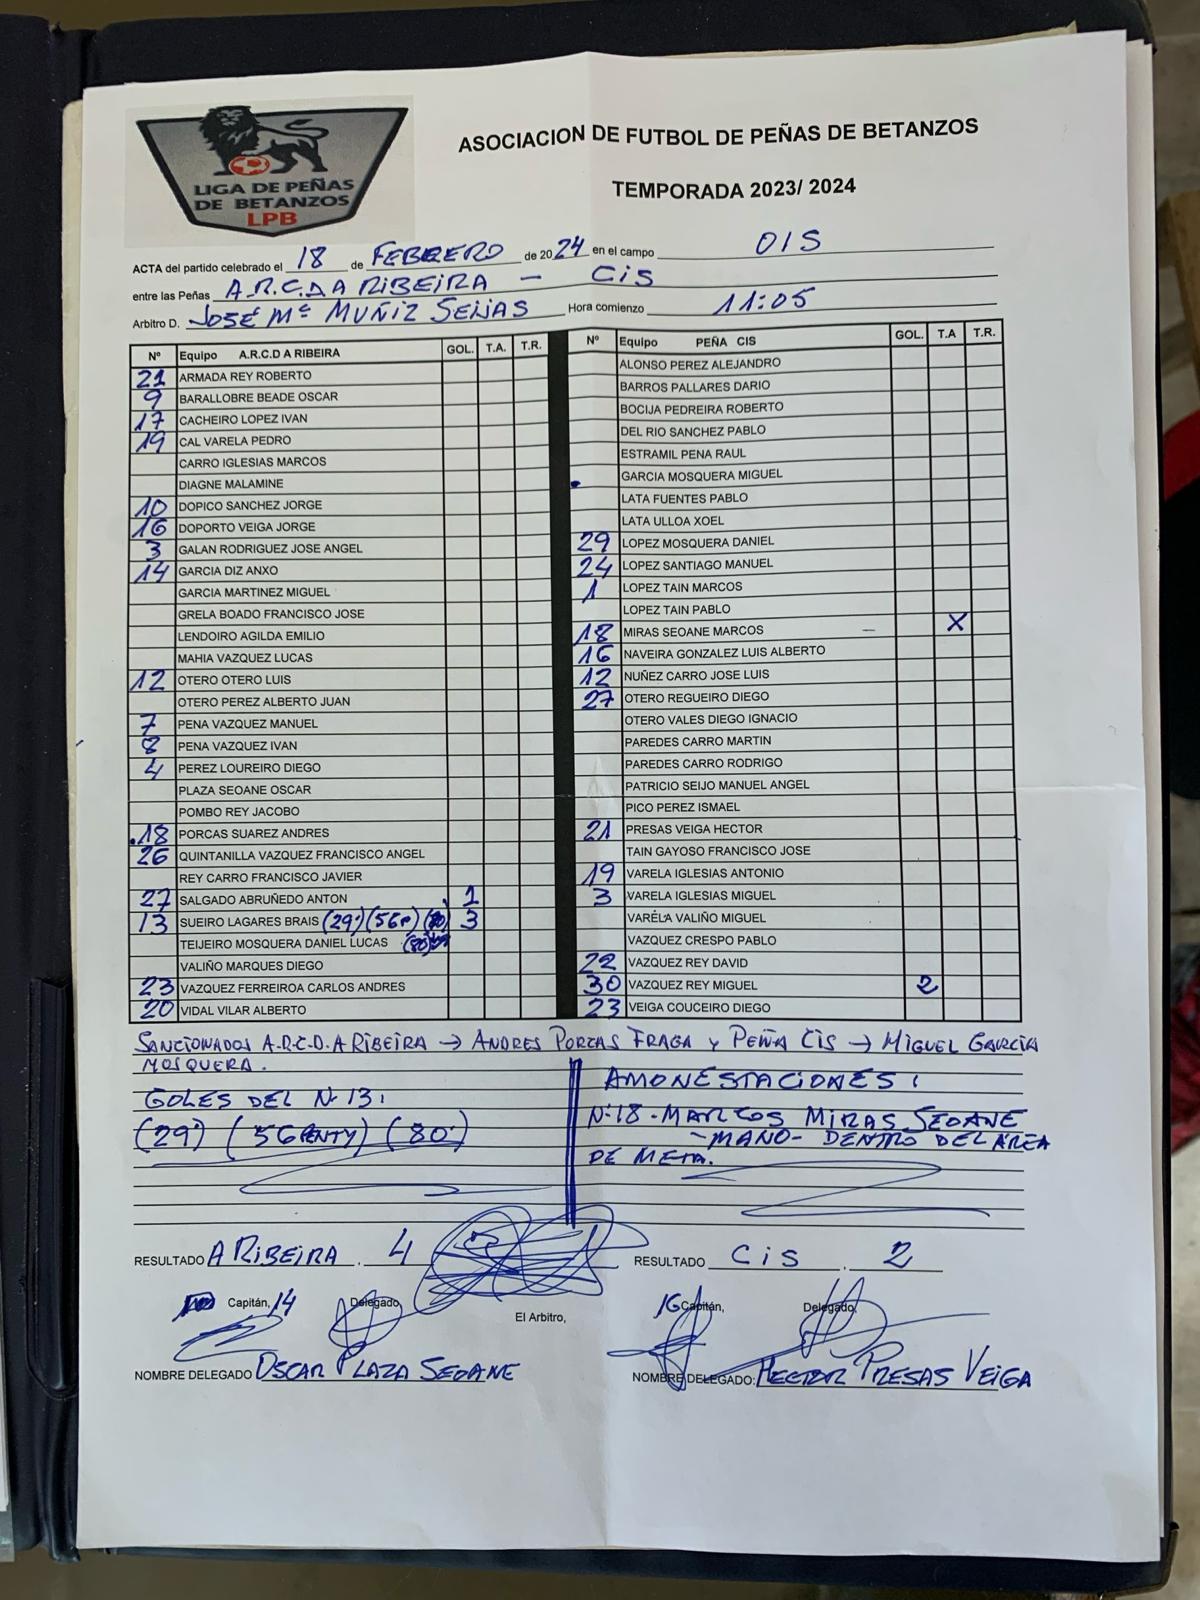 LIGA DE PEÑAS
DE BETANZOS
LPB
ASOCIACION DE FUTBOL DE PEÑAS DE BETANZOS
TEMPORADA 2023/ 2024
ACTA del partido celebrado el 18 de FEBRERO de 2024 en el campo OIS
entre las Peñas A.R.C.D.A RIBEIRA - CIS
Arbitro D. JOSÉ Mª MUÑIZ SEIJAS Hora comienzo 11:05
Nº Equipo A.R.C.D A RIBEIRA GOL. T.A. T.R.
21 ARMADA REY ROBERTO
9 BARALLOBRE BEADE OSCAR
17 CACHEIRO LOPEZ IVAN
19 CAL VARELA PEDRO
CARRO IGLESIAS MARCOS
DIAGNE MALAMINE
10 DOPICO SANCHEZ JORGE
16 DOPORTO VEIGA JORGE
3 GALAN RODRIGUEZ JOSE ANGEL
14 GARCIA DIZ ANXO
GARCIA MARTINEZ MIGUEL
GRELA BOADO FRANCISCO JOSE
LENDOIRO AGILDA EMILIO
MAHIA VAZQUEZ LUCAS
12 OTERO OTERO LUIS
OTERO PEREZ ALBERTO JUAN
7 PENA VAZQUEZ MANUEL
8 PENA VAZQUEZ IVAN
4 PEREZ LOUREIRO DIEGO
PLAZA SEOANE OSCAR
POMBO REY JACOBO
18 PORCAS SUAREZ ANDRES
26 QUINTANILLA VAZQUEZ FRANCISCO ANGEL
REY CARRO FRANCISCO JAVIER
27 SALGADO ABRUÑEDO ANTON 1
13 SUEIRO LAGARES BRAIS (29') (56P) (80) 3
TEIJEIRO MOSQUERA DANIEL LUCAS
VALIÑO MARQUES DIEGO
23 VAZQUEZ FERREIROA CARLOS ANDRES
20 VIDAL VILAR ALBERTO
Nº Equipo PEÑA CIS GOL. T.A T.R.
ALONSO PEREZ ALEJANDRO
BARROS PALLARES DARIO
BOCIJA PEDREIRA ROBERTO
DEL RIO SANCHEZ PABLO
ESTRAMIL PENA RAUL
GARCIA MOSQUERA MIGUEL
LATA FUENTES PABLO
LATA ULLOA XOEL
29 LOPEZ MOSQUERA DANIEL
24 LOPEZ SANTIAGO MANUEL
1 LOPEZ TAIN MARCOS
LOPEZ TAIN PABLO
18 MIRAS SEOANE MARCOS - X
16 NAVEIRA GONZALEZ LUIS ALBERTO
12 NUÑEZ CARRO JOSE LUIS
27 OTERO REGUEIRO DIEGO
OTERO VALES DIEGO IGNACIO
PAREDES CARRO MARTIN
PAREDES CARRO RODRIGO
PATRICIO SEIJO MANUEL ANGEL
PICO PEREZ ISMAEL
21 PRESAS VEIGA HECTOR
TAIN GAYOSO FRANCISCO JOSE
19 VARELA IGLESIAS ANTONIO
3 VARELA IGLESIAS MIGUEL
VARELA VALIÑO MIGUEL
VAZQUEZ CRESPO PABLO
22 VAZQUEZ REY DAVID
30 VAZQUEZ REY MIGUEL 2
23 VEIGA COUCEIRO DIEGO
SANCIONADOS A.R.C.D.A RIBEIRA → ANDRES PORCAS FRAGA Y PEÑA CIS → MIGUEL GARCIA
MOSQUERA.
GOLES DEL Nº 13:
(29') (56PENTY) (80')
AMONESTACIONES:
Nº:18 - MARCOS MIRAS SEOANE
- MANO - DENTRO DEL ÁREA
DE META.
RESULTADO A RIBEIRA . 4
RESULTADO CIS . 2
Capitán, 14 Delegado El Arbitro, 16 Capitán, Delegado,
NOMBRE DELEGADO OSCAR PLAZA SEOANE
NOMBRE DELEGADO: HECTOR PRESAS VEIGA